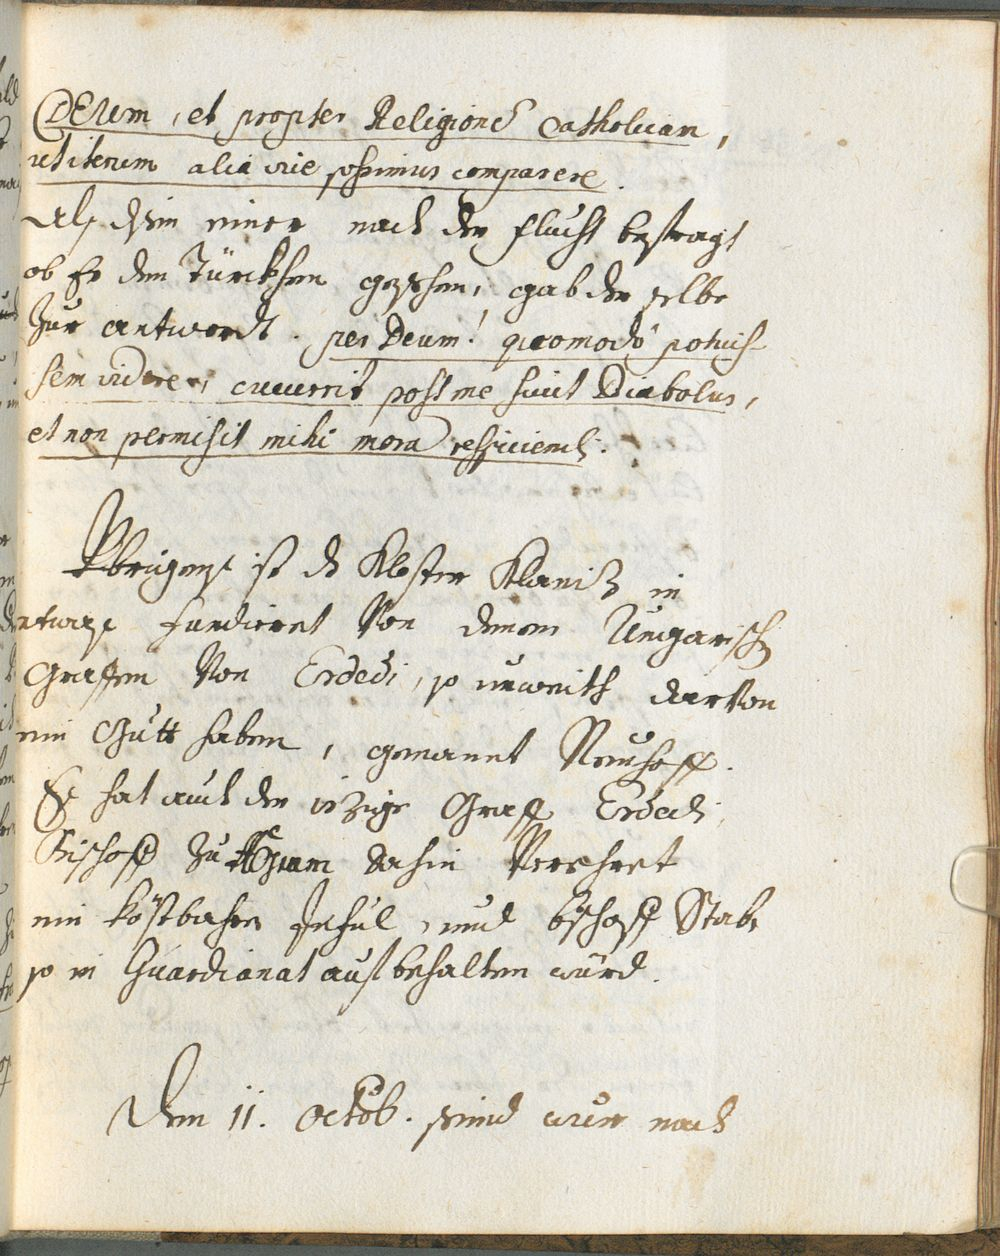 DEUm, et propter Religionē Catholicam,
ut iterum alia vice possimus comparere.
Alß dein einer nach der flucht befragt
ob Er den Türckhen gesehen, gab der selbe
Zur antwordt. per Deum! quomodo potuis-
sem videre, cucurrit post me sicut Diabolus,
et non permisit mihi mora respiciendi.
Übrigens ist ds Kloster Klaniz in
etwass fundieret Von denen Ungarisch
Graffen Von Erdedi, so unweith darVon
ein Gutt haben, genannt Neuhoff.
Es hat auch der iezige Graff Erdedi,
Bischoff Zu Agram dahin Verehret
ein kostbahre Inful, und bischoff Stab,
so in Guardianat auf behalten würd.
Den 11. Octob. seind wür nach